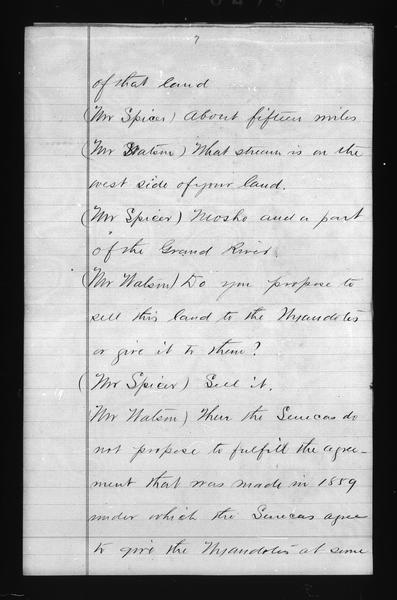 7
of that land
(Mr Spicer) About fifteen miles
(Mr Watson) What stream is on the
west side of your land.
(Mr Spicer) Neosho and a part
of the Grand River
(Mr Watson) Do you propose to
sell this land to the Wyandotts
or give it to them?
(Mr Spicer) Sell it.
(Mr Watson) Then the Senecas do
not propose to fulfill the agree-
ment that was made in 1859
under which the Senecas agree
to give the Wyandotts at some